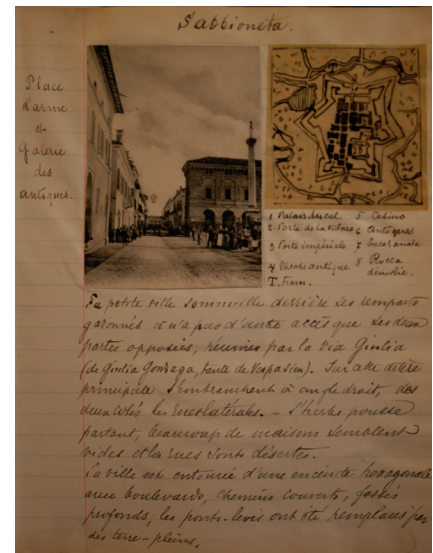 Sabbioneta.
Place
d'arme
et
Galerie
des
antiques.
1 Palais ducal
2 Porte de la Victoire
3 Porte impériale
4 Musée antique
T. Tram.
5 Casino
6 Antiques
7 Incoronata
8 Rocca
démolie.
La petite ville sommeille derrière ses remparts
gazonnés et n'a pas d'autre accès que ses deux
portes opposées, réunies par la Via Giulia
(de Giulia Gonzaga, tante de Vespasien). Sur cette artère
principale s'embranchent à angle droit, des
deux côtés les rues latérales. - L'herbe pousse
partout, beaucoup de maisons semblent
vides et les rues sont désertes.
La ville est entourée d'une enceinte hexagonale
avec boulevards, chemins couverts, fossés
profonds; les ponts-levis ont été remplacés par
des terre-pleins.